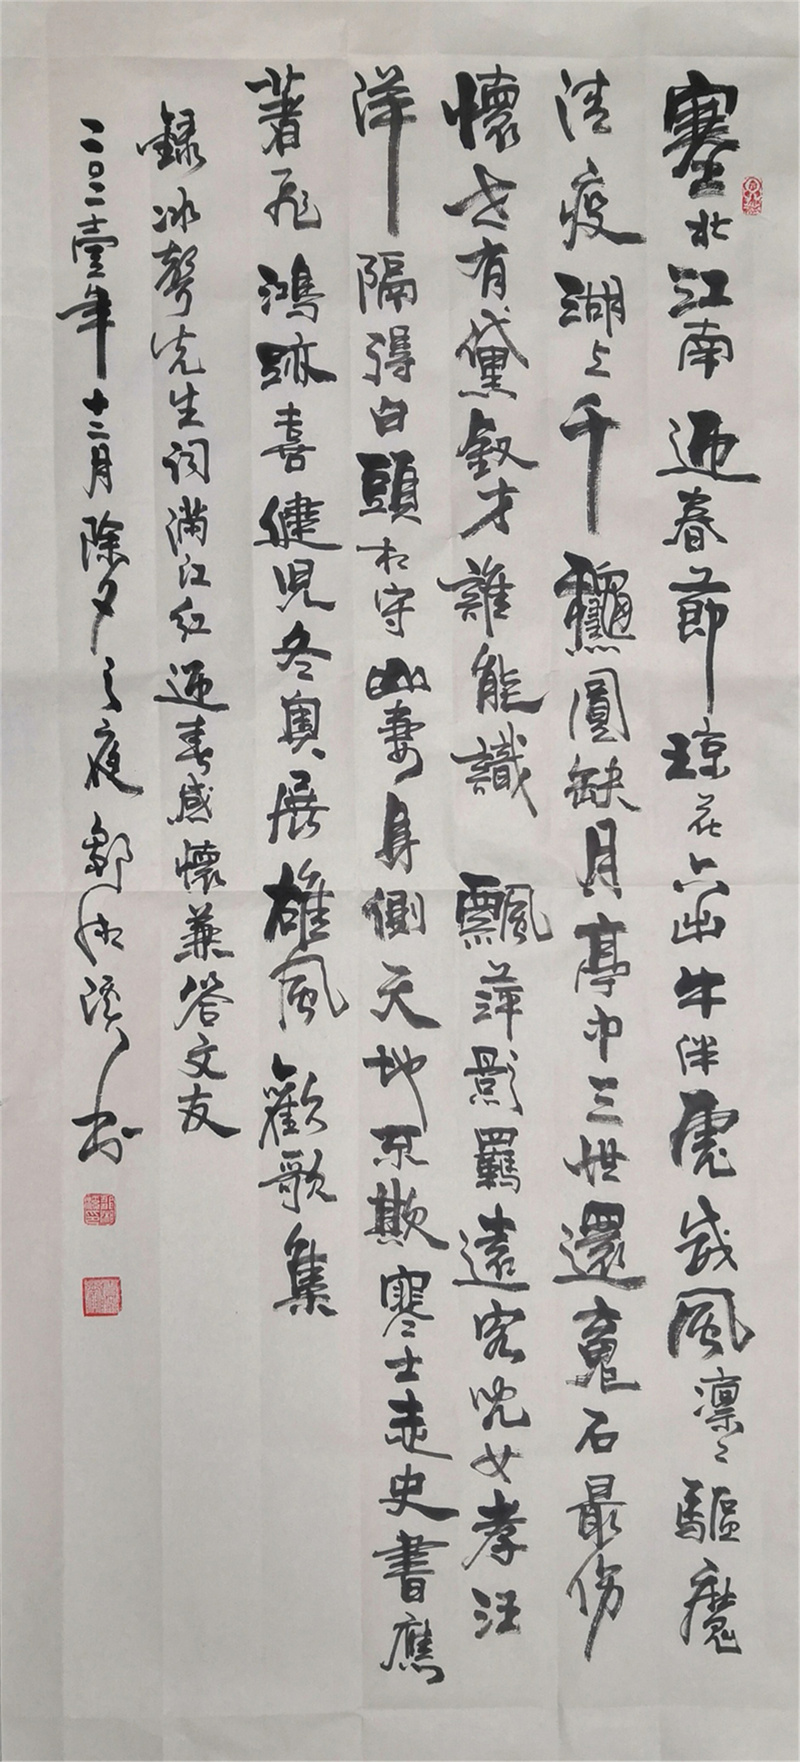 塞北江南迎春節琼花六出牛伴虎威風凛々驅魔
清疫湖上千穐圓缺月亭中三世還魂石最傷
懷也有黛釵才誰能識飄萍影羁遠客悦女孝汪
洋隔得白頭相守幽妻身側天地不欺寒士志史書應
著飛鴻跡喜健児冬奥展雄風歡歌集
録冰聲先生词满江红迎春感懷兼答文友
二〇二壹年十二月除夕之夜鄭书